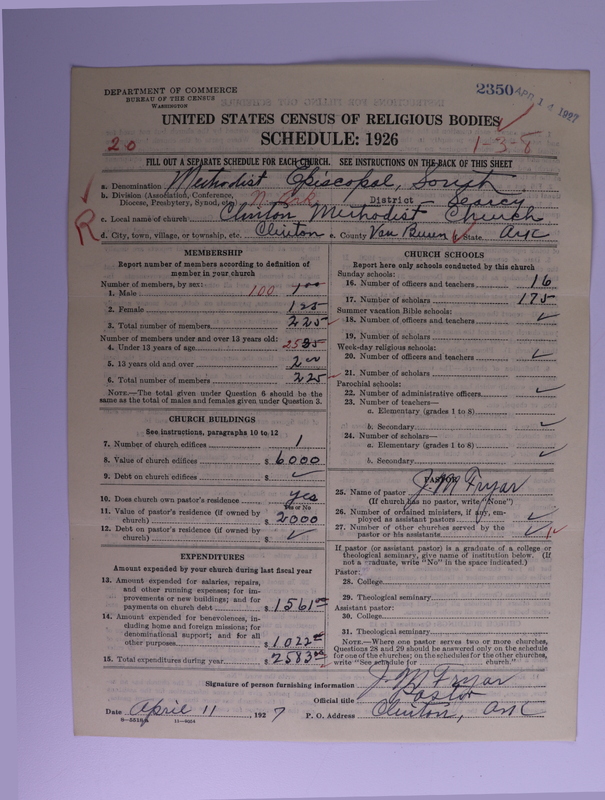 DEPARTMENT OF COMMERCE
BUREAU OF THE CENSUS
WASHINGTON
2350 APR 14 1927
UNITED STATES CENSUS OF RELIGIOUS BODIES
20 SCHEDULE: 1926 1-3-8
FILL OUT A SEPARATE SCHEDULE FOR EACH CHURCH. SEE INSTRUCTIONS ON THE BACK OF THIS SHEET
a. Denomination Methodist Episcopal, South
b. Division (Association, Conference, Diocese, Presbytery, Synod, etc.) N. Ark District Searcy
c. Local name of church Clinton Methodist Church
R
d. City, town, village, or township, etc. Clinton e. County Van Buren State Ark
MEMBERSHIP
Report number of members according to definition of
member in your church
Number of members, by sex:
1. Male 100 100
2. Female 125
3. Total number of members 225
Number of members under and over 13 years old:
4. Under 13 years of age 25
5. 13 years old and over 200
6. Total number of members 225
NOTE.—The total given under Question 6 should be the
same as the total of males and females given under Question 3.
CHURCH BUILDINGS
See instructions, paragraphs 10 to 12
7. Number of church edifices 1
8. Value of church edifices $ 6000
9. Debt on church edifices $ ✓
10. Does church own pastor's residence yes
Yes or No
11. Value of pastor's residence (if owned by
church) $ 2000
12. Debt on pastor's residence (if owned by
church) $ ✓
EXPENDITURES
Amount expended by your church during last fiscal year
13. Amount expended for salaries, repairs,
and other running expenses; for im-
provements or new buildings; and for
payments on church debt $ 1561 00
14. Amount expended for benevolences, in-
cluding home and foreign missions; for
denominational support; and for all
other purposes $ 1022 00
15. Total expenditures during year $ 2583 00
CHURCH SCHOOLS
Report here only schools conducted by this church
Sunday schools:
16. Number of officers and teachers 16
17. Number of scholars 175
Summer vacation Bible schools:
18. Number of officers and teachers ✓
19. Number of scholars
Week-day religious schools:
20. Number of officers and teachers ✓
21. Number of scholars
Parochial schools:
22. Number of administrative officers ✓
23. Number of teachers—
a. Elementary (grades 1 to 8)
b. Secondary ✓
24. Number of scholars—
a. Elementary (grades 1 to 8)
b. Secondary ✓
PASTOR
25. Name of pastor J. M. Fryar
(If church has no pastor, write "None")
26. Number of ordained ministers, if any, em-
ployed as assistant pastors ✓
27. Number of other churches served by the
pastor or his assistants ✓
If pastor (or assistant pastor) is a graduate of a college or
theological seminary, give name of institution below. (If
not a graduate, write "No" in the space indicated.)
Pastor:
28. College
29. Theological seminary
Assistant pastor:
30. College
31. Theological seminary
NOTE.—Where one pastor serves two or more churches,
Questions 28 and 29 should be answered only on the schedule
for one of the churches; on the schedules for the other churches,
write "See schedule for church."
Signature of person furnishing information J. M. Fryar
Official title Pastor
Date April 11, 1927 P. O. Address Clinton, Ark
11—9054